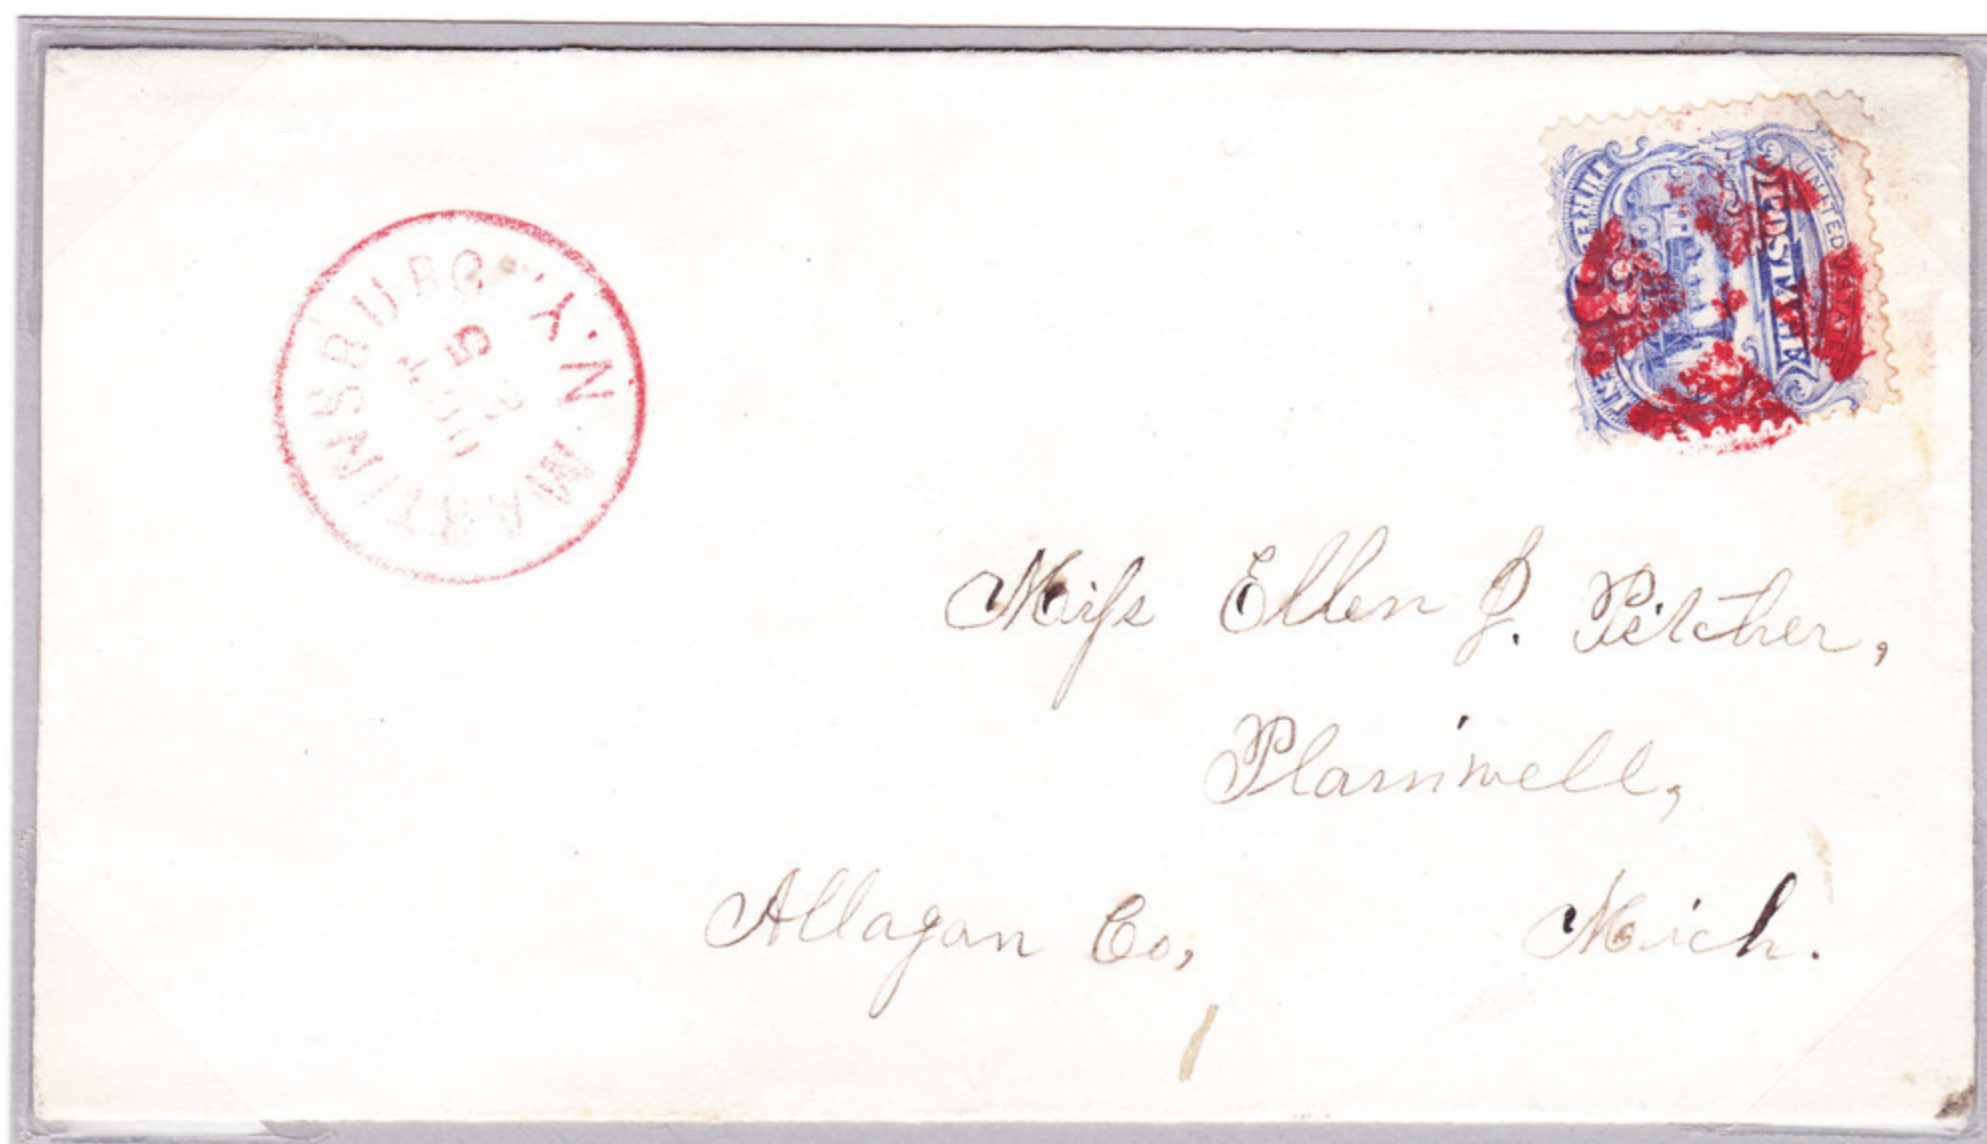 MARTINSBURG N.Y.
5
UNITED STATES
POSTAGE
THREE CENTS
3
Miſs Ellen J. Pitcher,
Plainwell,
Allagan Co,
Mich.